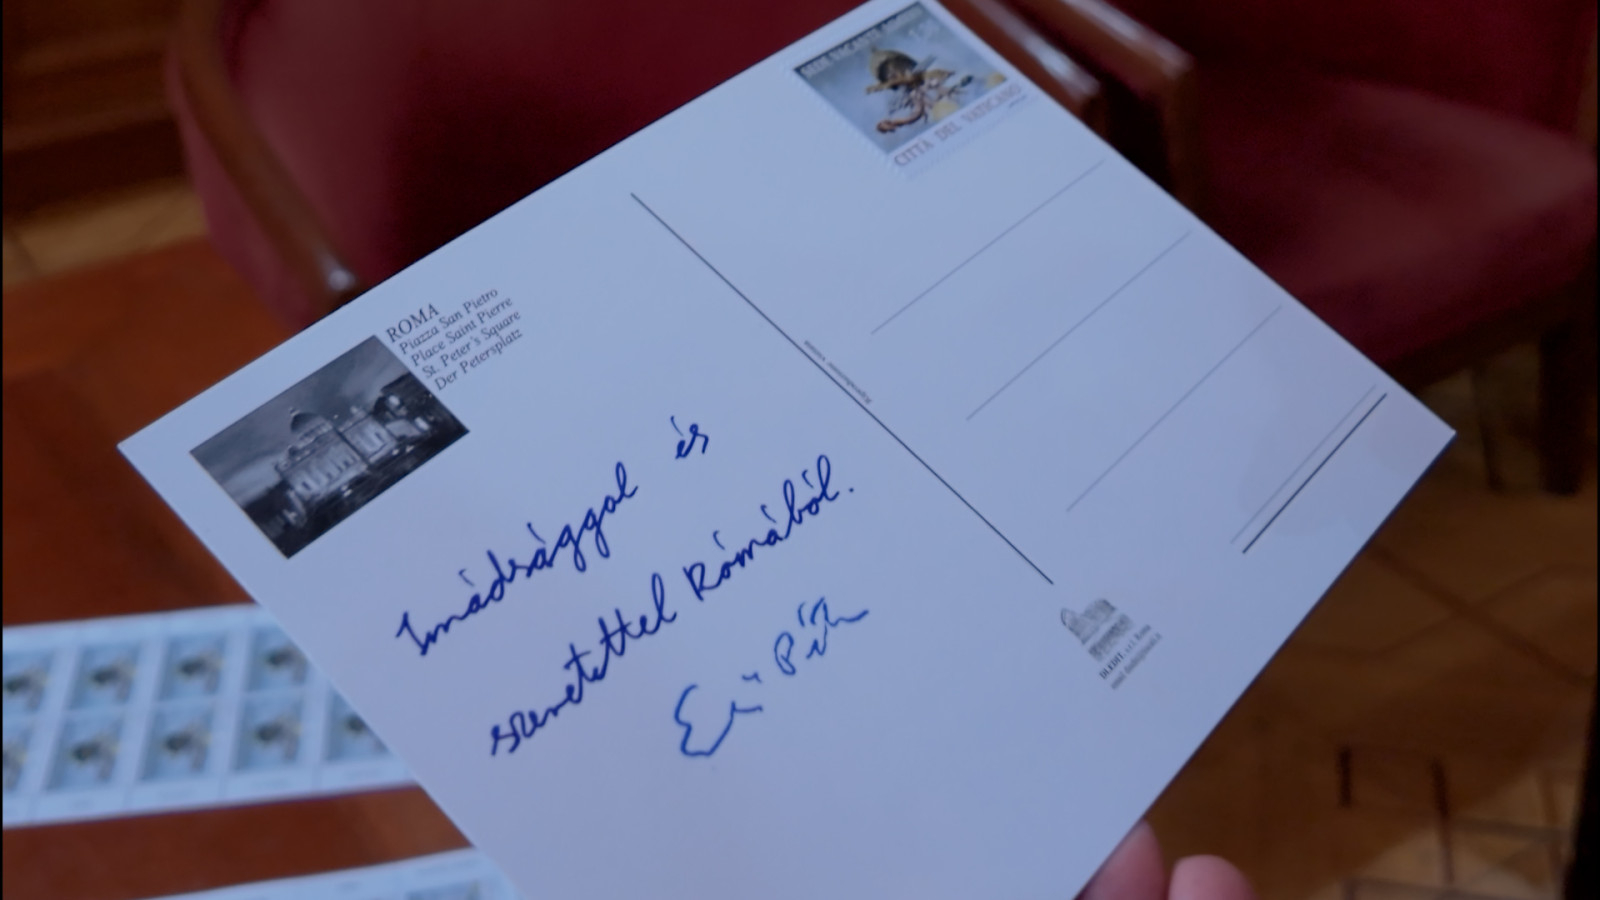 CITTÀ DEL VATICANO
ROMA
Piazza San Pietro
Place Saint Pierre
St. Peter's Square
Der Petersplatz
Imádsággal és
szeretettel Rómából.
Erdő Péter